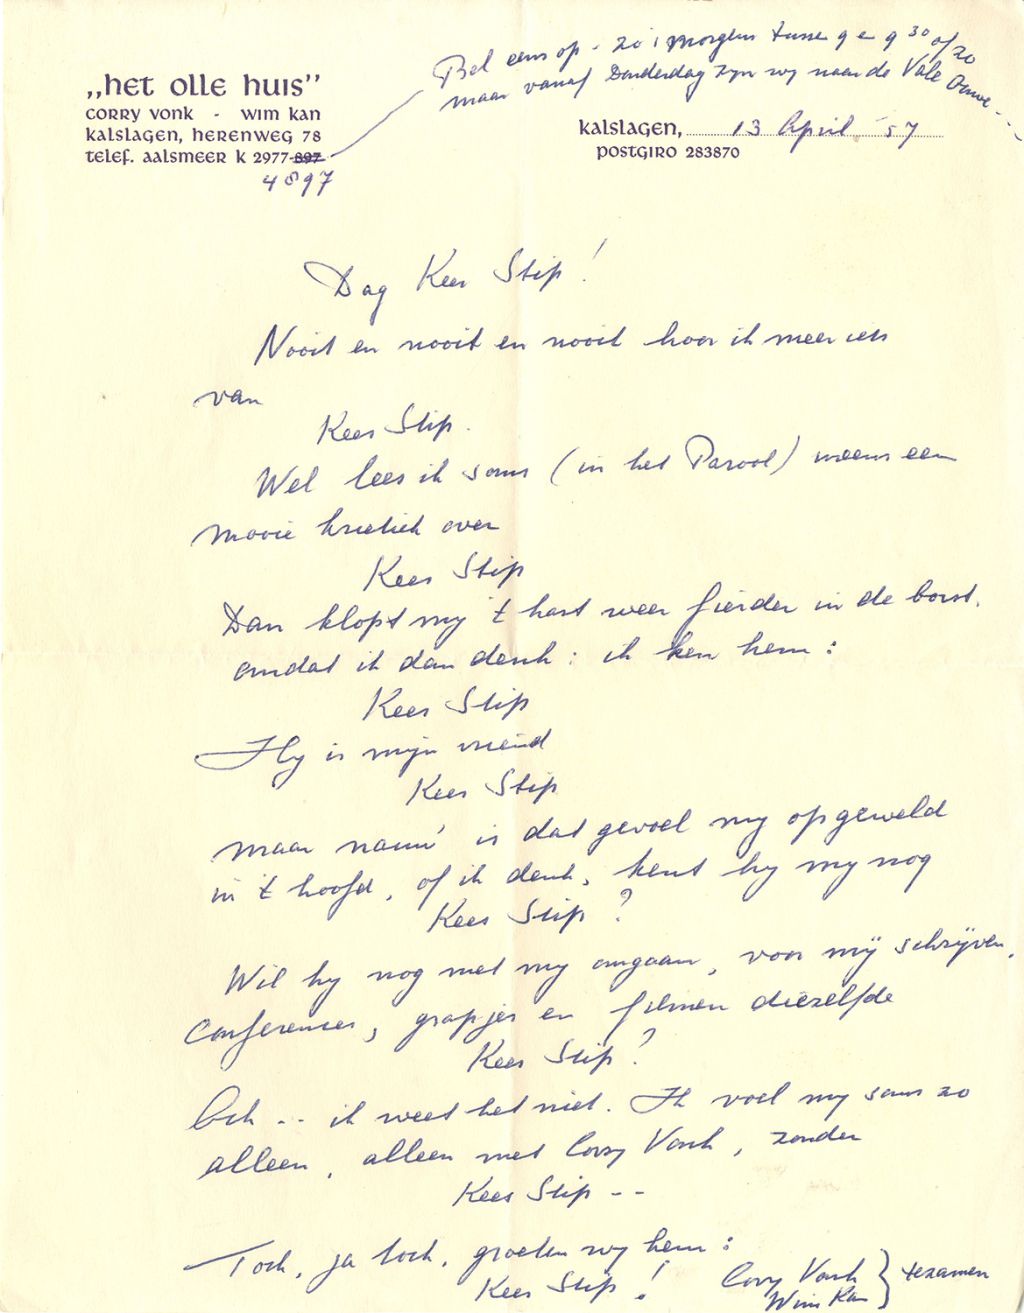 „het olle huis”
corry vonk - wim kan
kalslagen, herenweg 78
telef. aalsmeer k 2977-897
4897
Bel eens op - zo 's morgens tusse 9 e 9 30 of zo
maar vanaf Donderdag zijn wij naar de Vale Ouwe - - -
kalslagen, 13 April '57
postgiro 283870
Dag Kees Stip!
Nooit en nooit en nooit hoor ik meer iets
van
Kees Stip.
Wel lees ik soms (in het Parool) ineens een
mooie kritiek over
Kees Stip
Dan klopt mij 't hart weer fierder in de borst,
omdat ik dan denk: ik ken hem:
Kees Stip
Hij is mijn vriend
Kees Stip
maar nauw' is dat gevoel mij opgeweld
in 't hoofd, of ik denk, kent hij mij nog
Kees Stip?
Wil hij nog met mij omgaan, voor mij schrijven,
Conferences, grapjes en filmen diezelfde
Kees Stip?
Och -- ik weet het niet. Ik voel mij soms zo
alleen, alleen met Corry Vonk, zonder
Kees Stip --
Toch, ja toch, groeten wij hem:
Kees Stip!
Corry Vonk
Wim Kan } tezamen